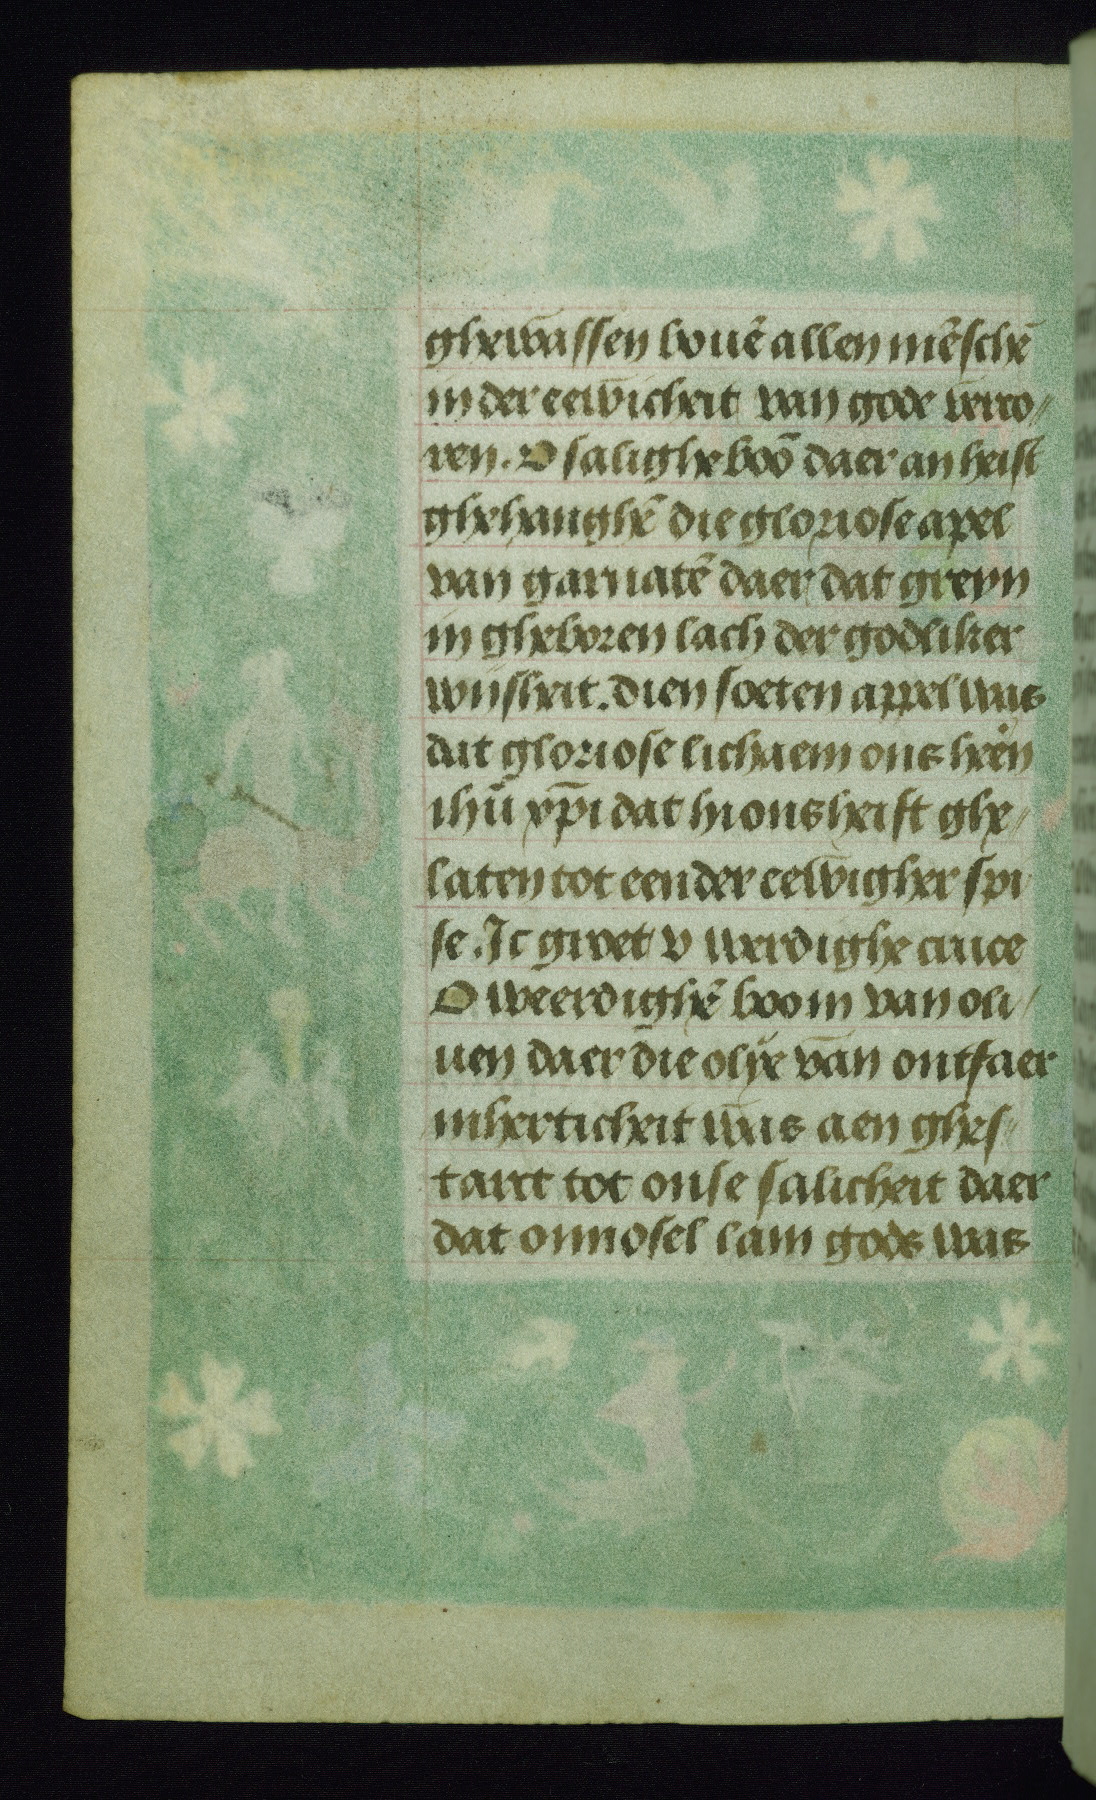 ghewassen bouē allen mēschē
in der eewicheit van gode verco⸗
ren. O salighe boō daer an heift
ghehanghē die gloriose apel
van garnatē daer dat greyn
in gheboren lach der godliker
wijsheit. dien soeten appel was
dat gloriose lichaem ons heēn
ihū xp̄i dat hi ons heift ghe⸗
laten tot eender eewigher spi
se. Ic groet v werdighe cruce
O weerdighē boom van oli⸗
uen daer die olye van ontfaer
mherticheit was aen ghes⸗
tarct tot onse salicheit daer
dat onnosel lam gods was